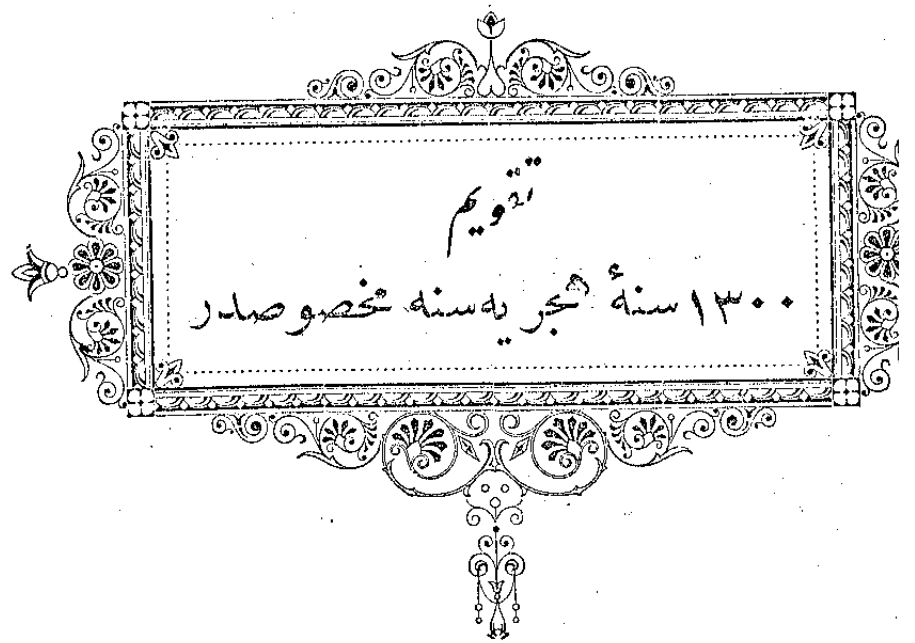 تقويم
١٣٠٠ سنهٔ هجريه‌سنه مخصوصدر